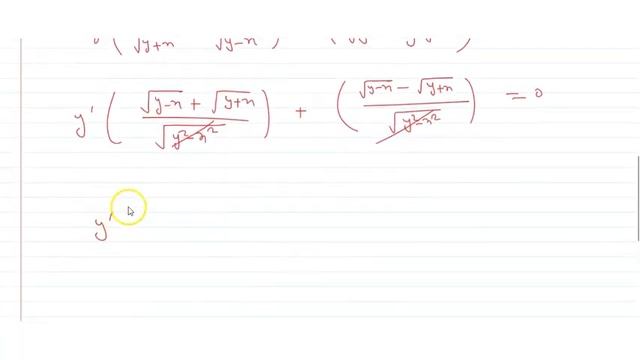 y' ( (√(y-x) + √(y+x)) / √(y²-x²) ) + ( (√(y-x) - √(y+x)) / √(y²-x²) ) = 0
y'